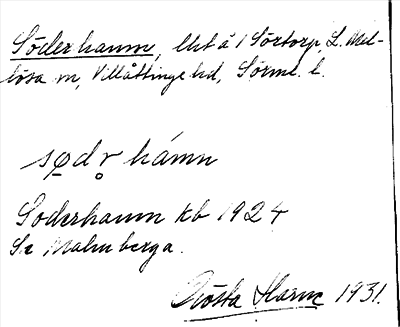 Söderhamn, lht å 1 Sörtorp, L. Mel-
lösa sn, Villåttinge hd, Sörml. l.
sødr hámn
Söderhamn kb 1924
Se Malmberga.
Gösta Harne 1931.